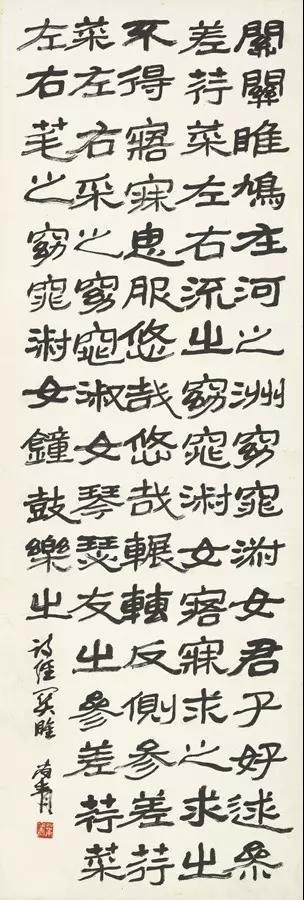 關關雎鳩在河之洲窈窕淑女君子好逑參
差荇菜左右流之窈窕淑女寤寐求之求之
不得寤寐思服悠哉悠哉輾轉反側參差荇
菜左右采之窈窕淑女琴瑟友之參差荇菜
左右芼之窈窕淑女鐘鼓樂之
詩經關雎